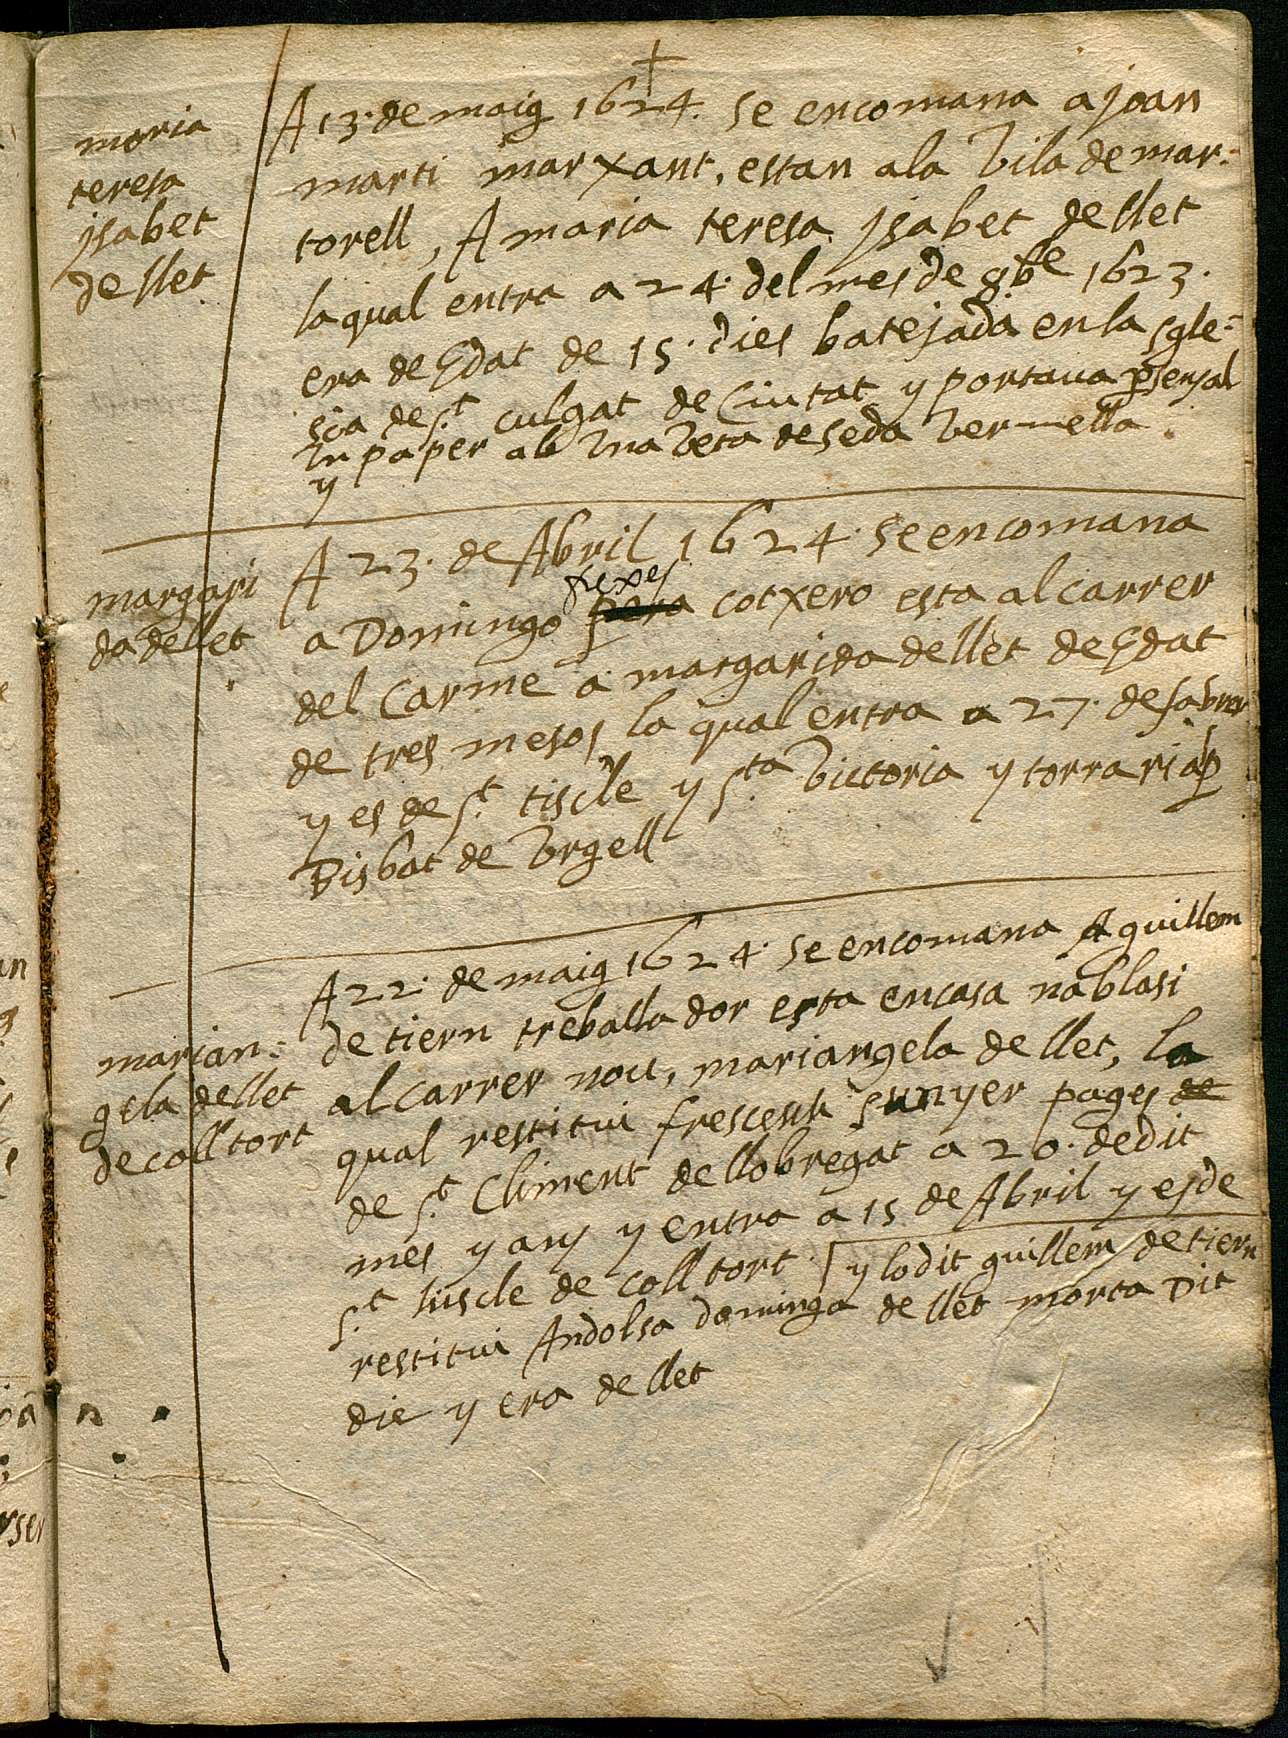 maria
teresa
jsabet
de llet
A 13· de maig 1624. se encomana a joan
marti marxant, estan ala Vila de mar=
torell, A maria teresa jsabet de llet
la qual entra a 24· del mes de 8bre 1623·
era de Edat de 15· dies batejada en la sgle=
sia de St culgat de Ciutat y portava per senyal
un paper ab una Veta de seda Vermella·
y
margari
da de llet
A 23· de Abril 1624· se encomana
a Domingo fexes cotxero esta al carrer
del Carme a margarida de llet de Edat
de tres mesos la qual entra a 27· de fabrer
y es de St tiscle y Sta Victoria y torraria
Bisbat de Vrgell
marian=
gela de llet
de coll tort
A 22· de maig 1624· se encomana A guillem
de tiern treballador esta en casa na blasi
al carrer nou, mariangela de llet, la
qual restitui frescesch sunyer pages de
de St Climent de llobregat a 20· de dit
mes y any y entra a 15 de Abril y es de
St tiiscle de coll tort y lo dit guillem de tiern
restitui Andolsa dominga de llet morta Dit
die y era de llet